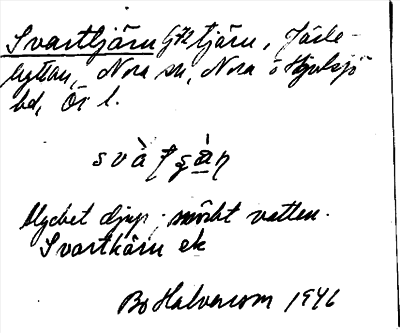 Svarttjärn GK tjärn, Järle-
hyttan, Nora sn, Nora o Hjulsjö
bd, Ör l.
Mycket djup; mörkt vatten.
Svartkärn ek
Bo Halvarson 1946